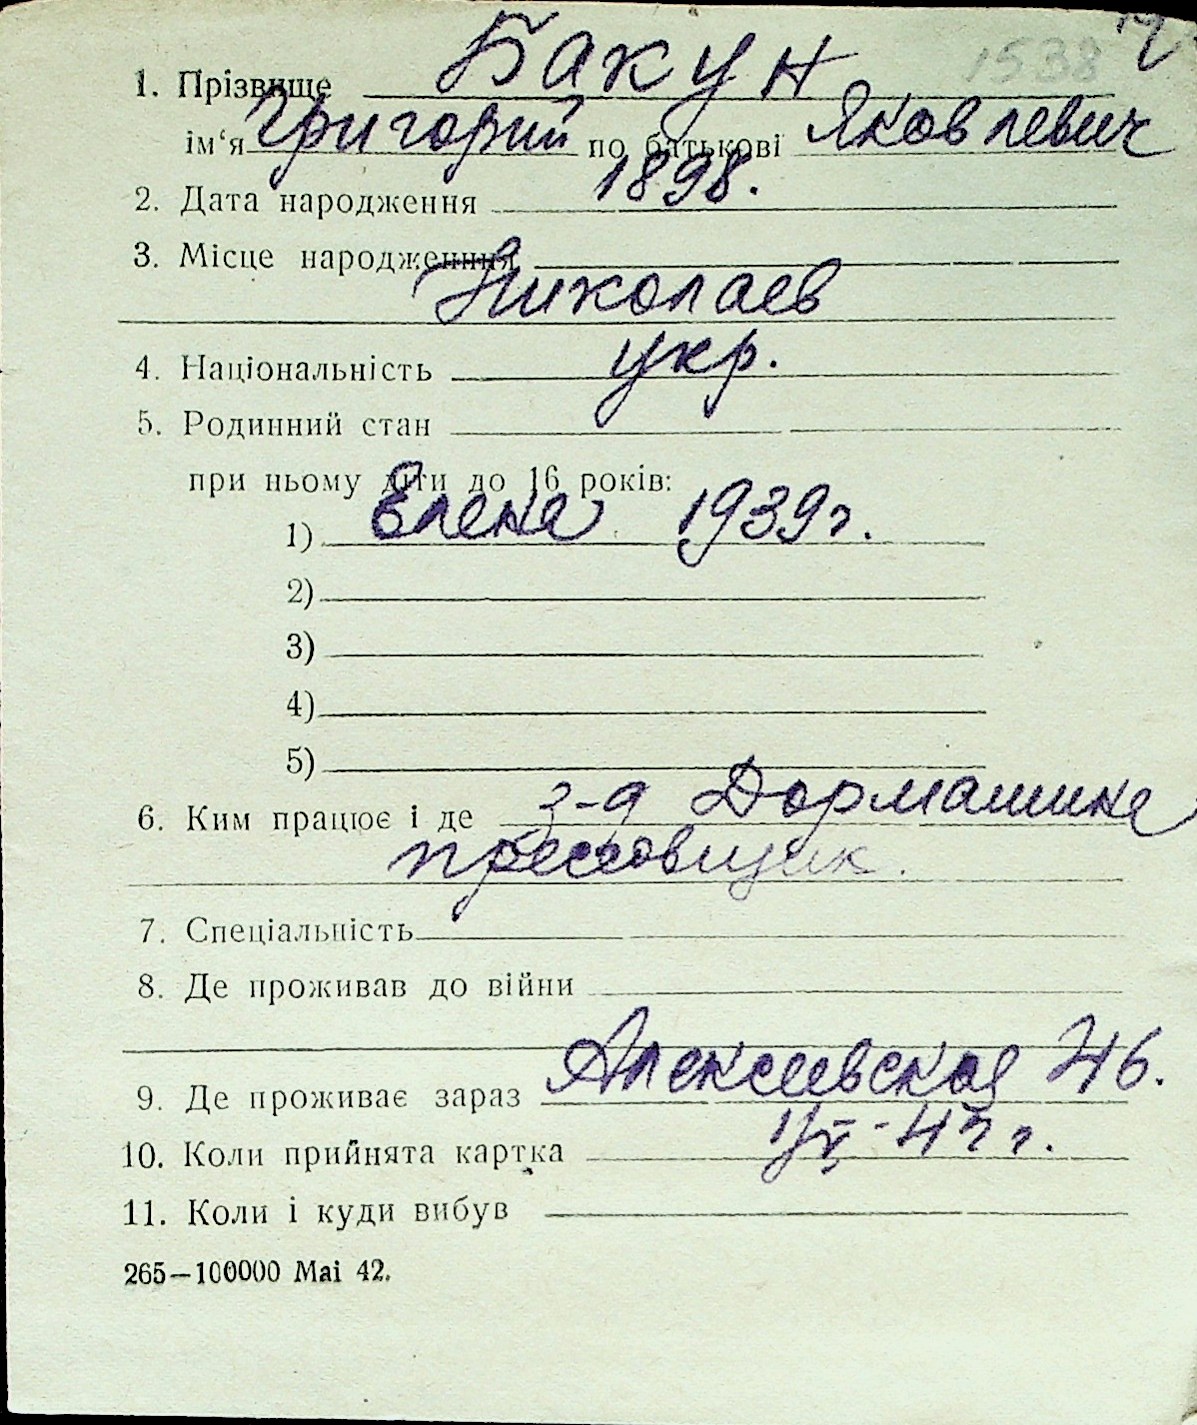 1538
1. Прізвище Бакун
ім‘я Григорий по батькові Яковлевич
2. Дата народження 1898.
3. Місце народження
Николаев
4. Національність укр.
5. Родинний стан
при ньому діти до 16 років:
1) Елена 1939 г.
2)
3)
4)
5)
6. Ким працює і де з-д Дормашина
прессовщик.
7. Спеціальність
8. Де проживав до війни
9. Де проживає зараз Алексеевская 46.
10. Коли прийнята картка
11. Коли і куди вибув
265—100000 Mai 42.